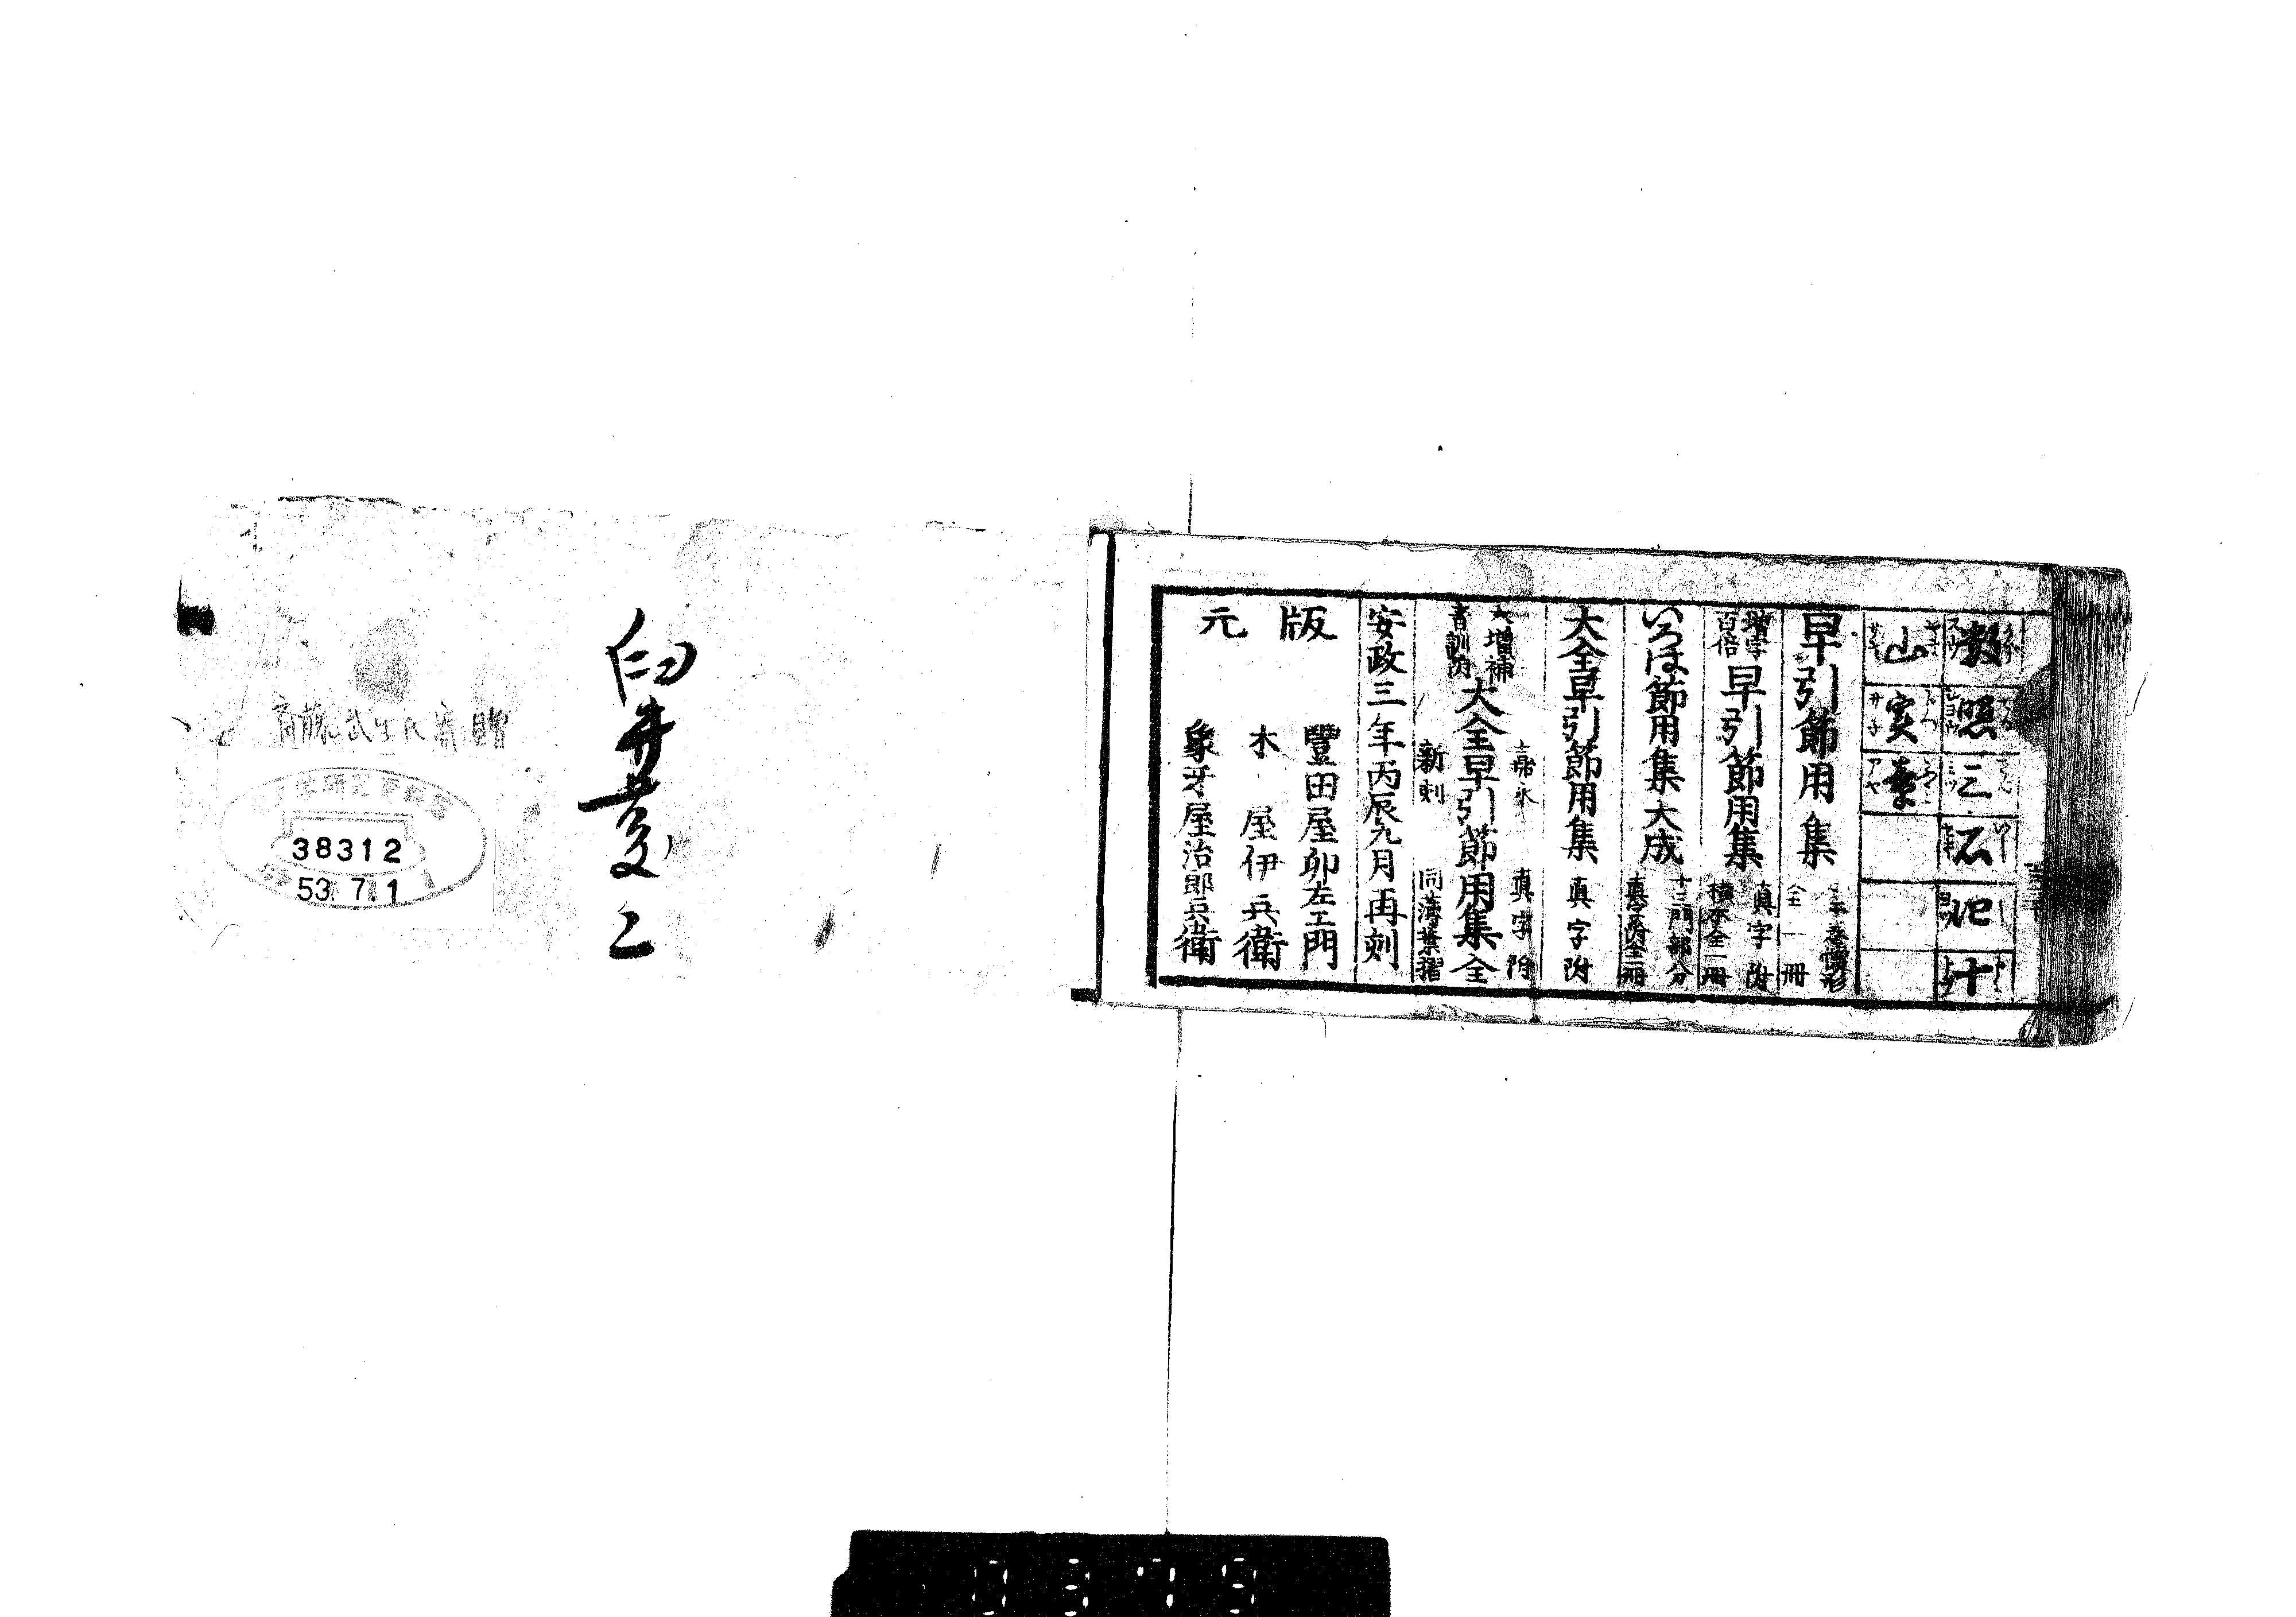 数 照 三 石
山 実
早引節用集
全一冊
増字
百倍
早引節用集
真字附
横本全一冊
いろは節用集大成
十三門部分
大全早引節用集 真字附
増補
音訓附
大全早引節用集 全
嘉永
新刻
真字附
同薄葉摺
安政三年丙辰九月再刻
版元
豐田屋卯左エ門
木屋伊兵衛
象牙屋治郎兵衛
臼井
斎藤武生氏寄贈
38312
53. 7. 1